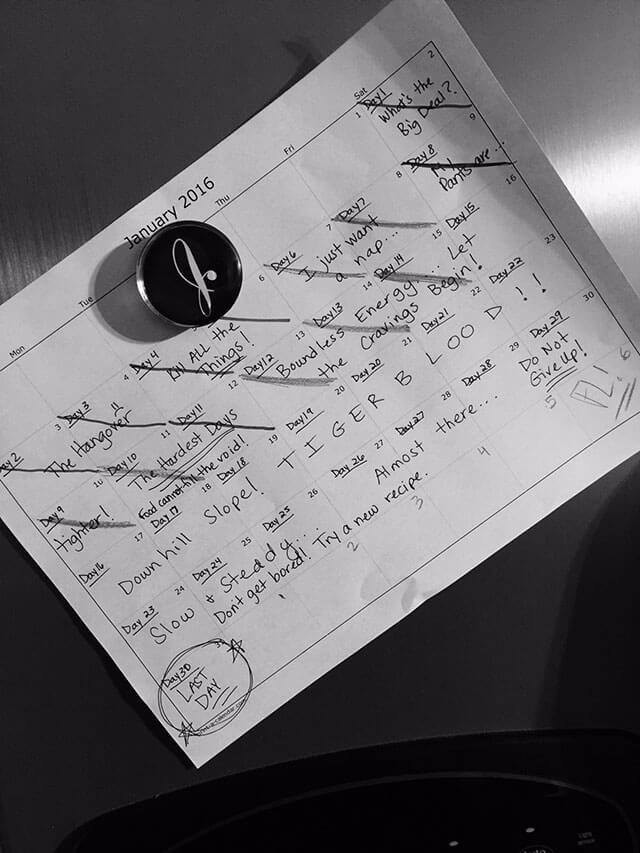 January 2016
Mon Tue Thu Fri Sat
1 2
Day 1
What's the
Big Deal?
4 6 7 8 9
Day 2 Day 3 Day 4 Day 6 Day 7 Day 8
The Hangover
Kill ALL the
Things!
I just want
a nap...
Pants are...
10 11 12 13 14 15 16
Day 9 Day 10 Day 11 Day 12 Day 13 Day 14 Day 15
tighter!
The Hardest Days
Food cannot fill the void!
Boundless Energy... Let
the Cravings Begin!
17 18 19 20 21 22 23
Day 16 Day 17 Day 18 Day 19 Day 20 Day 21 Day 22
Downhill Slope! TIGER BLOOD!!
24 25 26 27 28 29 30
Day 23 Day 24 Day 25 Day 26 Day 27 Day 28 Day 29
Slow & Steady... Almost there... Do Not
Give Up!
Don't get bored! Try a new recipe.
Day 30
LAST
DAY
1 2 3 4 5 6